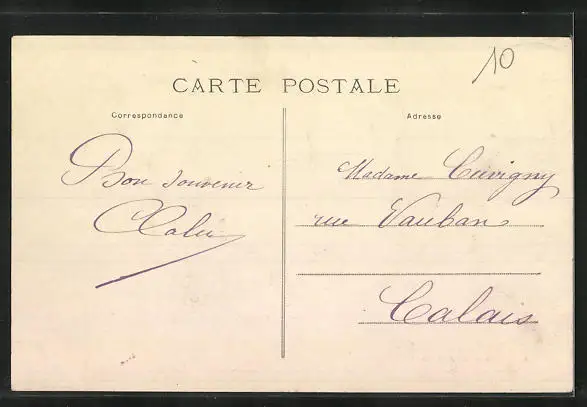 10
CARTE POSTALE
Correspondance
Bon souvenir
Adresse
Madame Cuvigny
rue Vauban
Calais